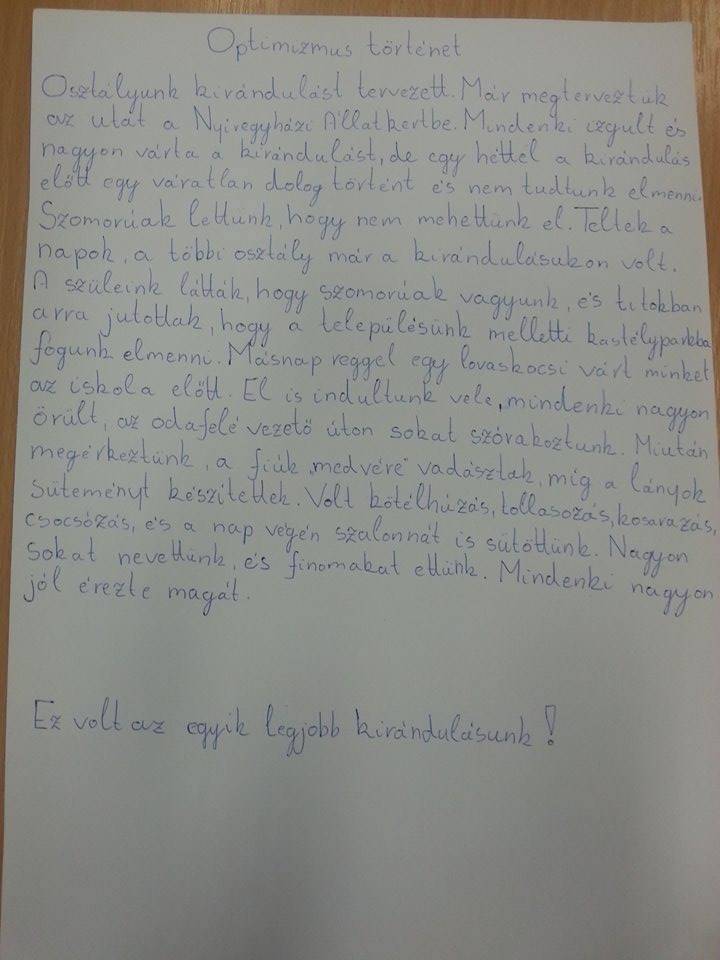 Optimizmus történet
Osztályunk kirándulást tervezett. Már megterveztük
az utat a Nyíregyházi Állatkertbe. Mindenki izgult és
nagyon várta a kirándulást, de egy héttel a kirándulás
előtt egy váratlan dolog történt és nem tudtunk elmenni.
Szomorúak lettünk, hogy nem mehettünk el. Teltek a
napok, a többi osztály már a kirándulásukon volt.
A szüleink látták, hogy szomorúak vagyunk, és titokban
arra jutottak, hogy a településünk melletti kastélyparkba
fogunk elmenni. Másnap reggel egy lovaskocsi várt minket
az iskola előtt. El is indultunk vele, mindenki nagyon
örült, az odafelé vezető úton sokat szórakoztunk. Miután
megérkeztünk, a fiúk „medvére" vadásztak, míg a lányok
süteményt készítettek. Volt kötélhúzás, tollasozás, kosarazás,
csocsózás, és a nap végén szalonnát is sütöttünk. Nagyon
sokat nevettünk, és finomakat ettünk. Mindenki nagyon
jól érezte magát.
Ez volt az egyik legjobb kirándulásunk!